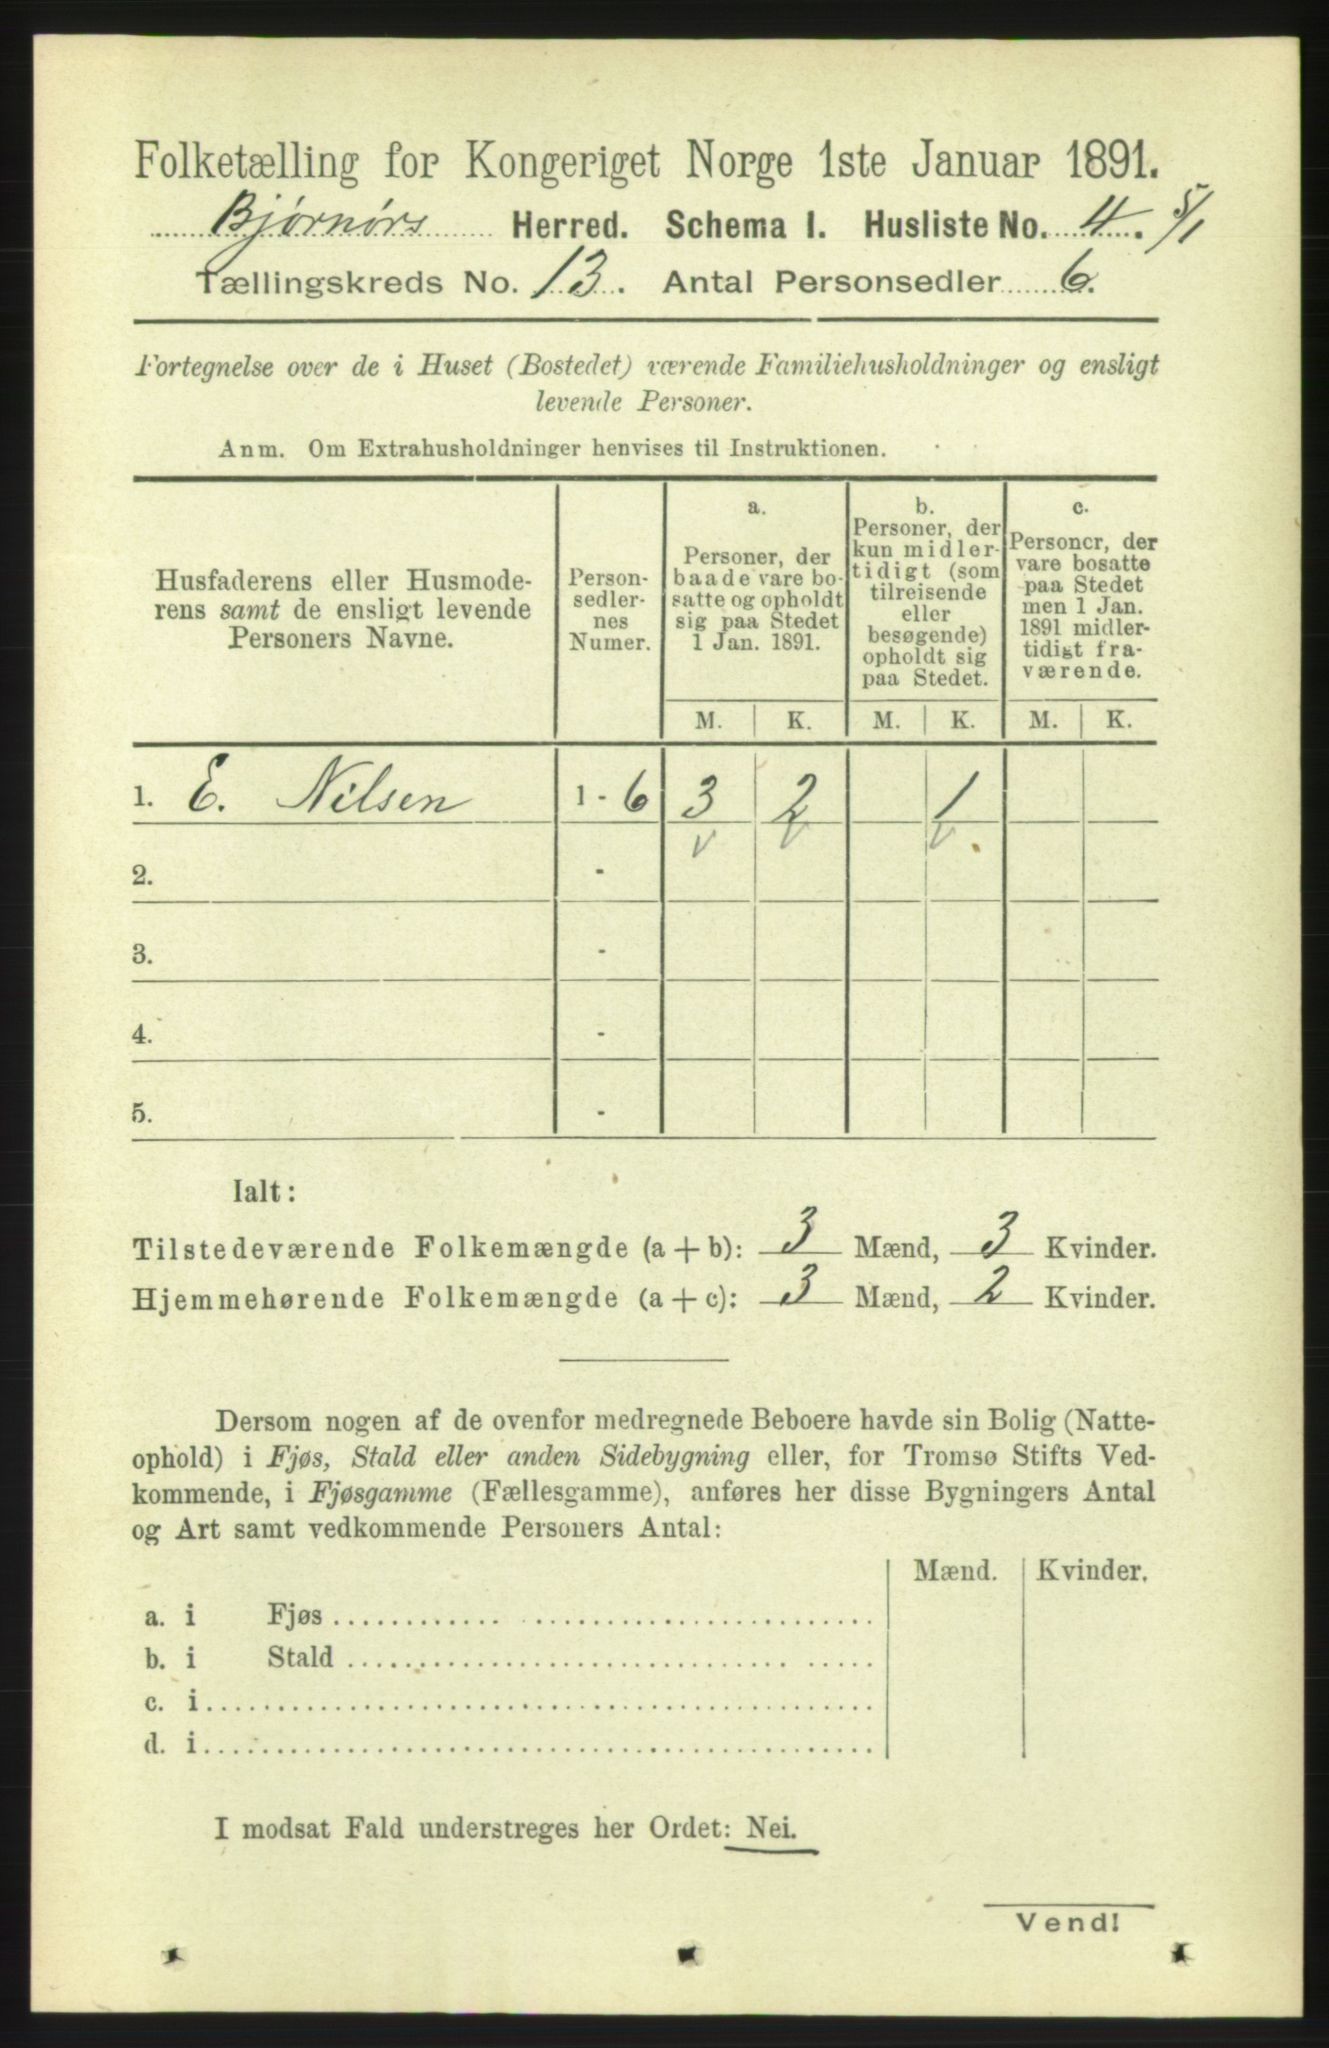 Folketælling for Kongeriget Norge 1ste Januar 1891.
Bjørnørs Herred. Schema I. Husliste No. 4. 5/1
Tællingskreds No. 13. Antal Personsedler 6.
Fortegnelse over de i Huset (Bostedet) værende Familiehusholdninger og ensligt
levende Personer.
Anm. Om Extrahusholdninger henvises til Instruktionen.
Husfaderens eller Husmode-
rens samt de ensligt levende
Personers Navne.
Person-
sedler-
nes
Numer.
a.
Personer, der
baade vare bo-
satte og opholdt
sig paa Stedet
1 Jan. 1891.
b.
Personer, der
kun midler-
tidigt (som
tilreisende
eller
besøgende)
opholdt sig
paa Stedet.
c.
Personer, der
vare bosatte
paa Stedet
men 1 Jan.
1891 midler-
tidigt fra-
værende.
M. K. M. K. M. K.
1. E. Nilsen 1 - 6 3 2 1
v v v
2. -
3. -
4. -
5. -
Ialt:
Tilstedeværende Folkemængde (a + b): 3 Mænd, 3 Kvinder.
Hjemmehørende Folkemængde (a + c): 3 Mænd, 2 Kvinder.
Dersom nogen af de ovenfor medregnede Beboere havde sin Bolig (Natte-
ophold) i Fjøs, Stald eller anden Sidebygning eller, for Tromsø Stifts Ved-
kommende, i Fjøsgamme (Fællesgamme), anføres her disse Bygningers Antal
og Art samt vedkommende Personers Antal:
Mænd. Kvinder.
a. i Fjøs
b. i Stald
c. i
d. i
I modsat Fald understreges her Ordet: Nei.
Vend!